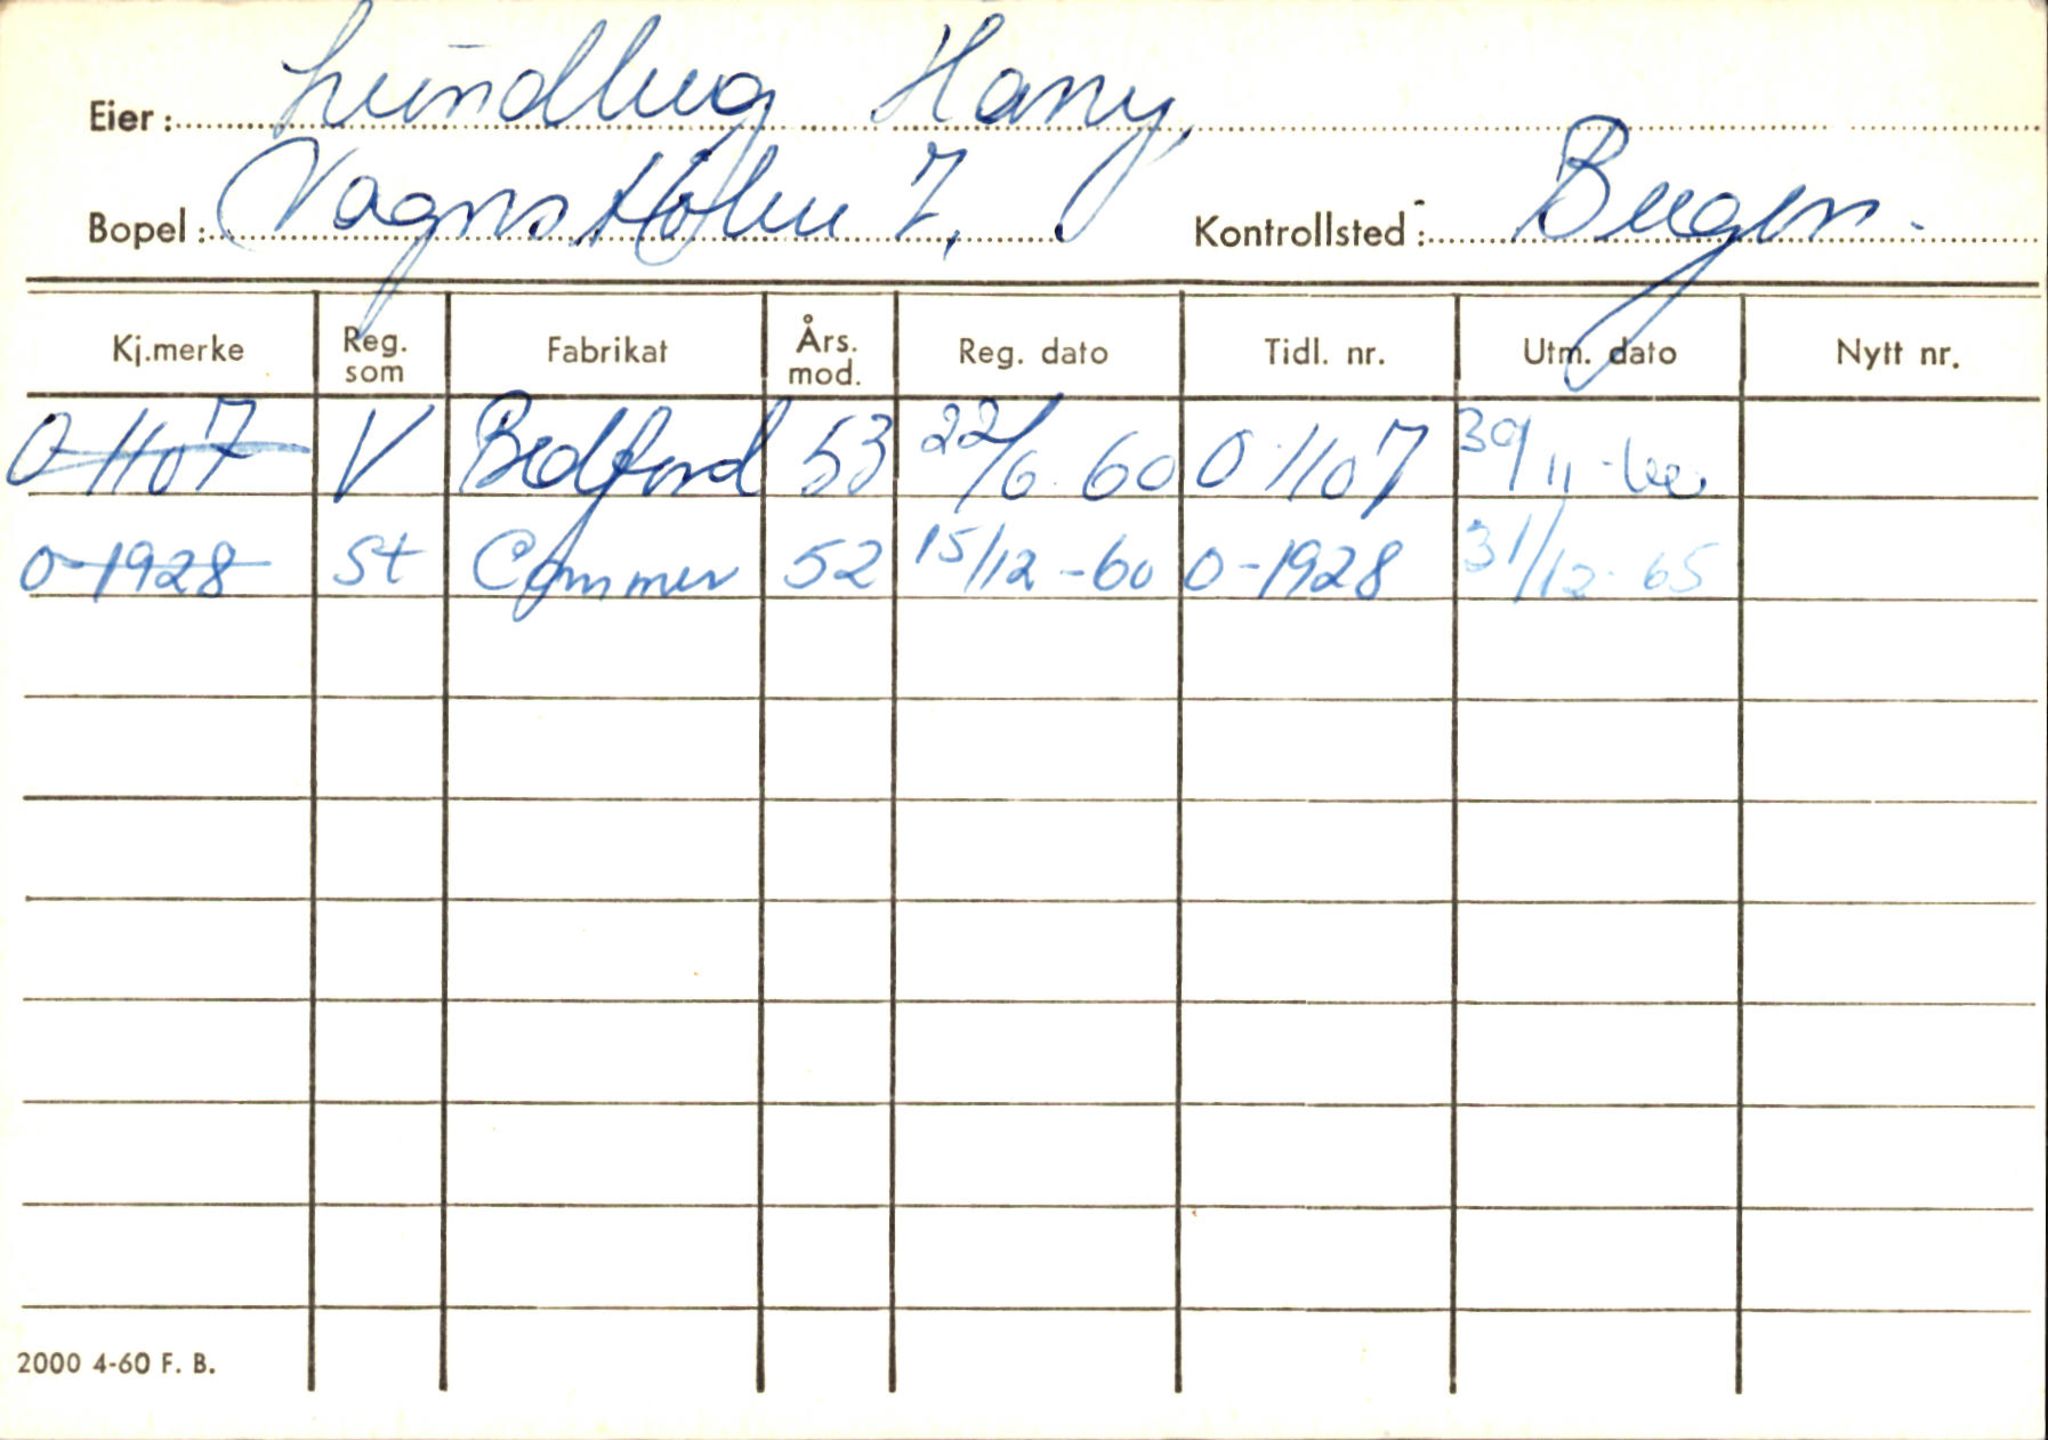 Eier: Lundberg Harry,
Bopel: Vognstølen 7, Kontrollsted: Bergen.
Kj.merke Reg. som Fabrikat Års. mod. Reg. dato Tidl. nr. Utm. dato Nytt nr.
O-1107 V Bedford 53 22/6 60 O-1107 30/11-60
O-1928 St Commer 52 15/12-60 O-1928 31/12-65
2000 4-60 F. B.